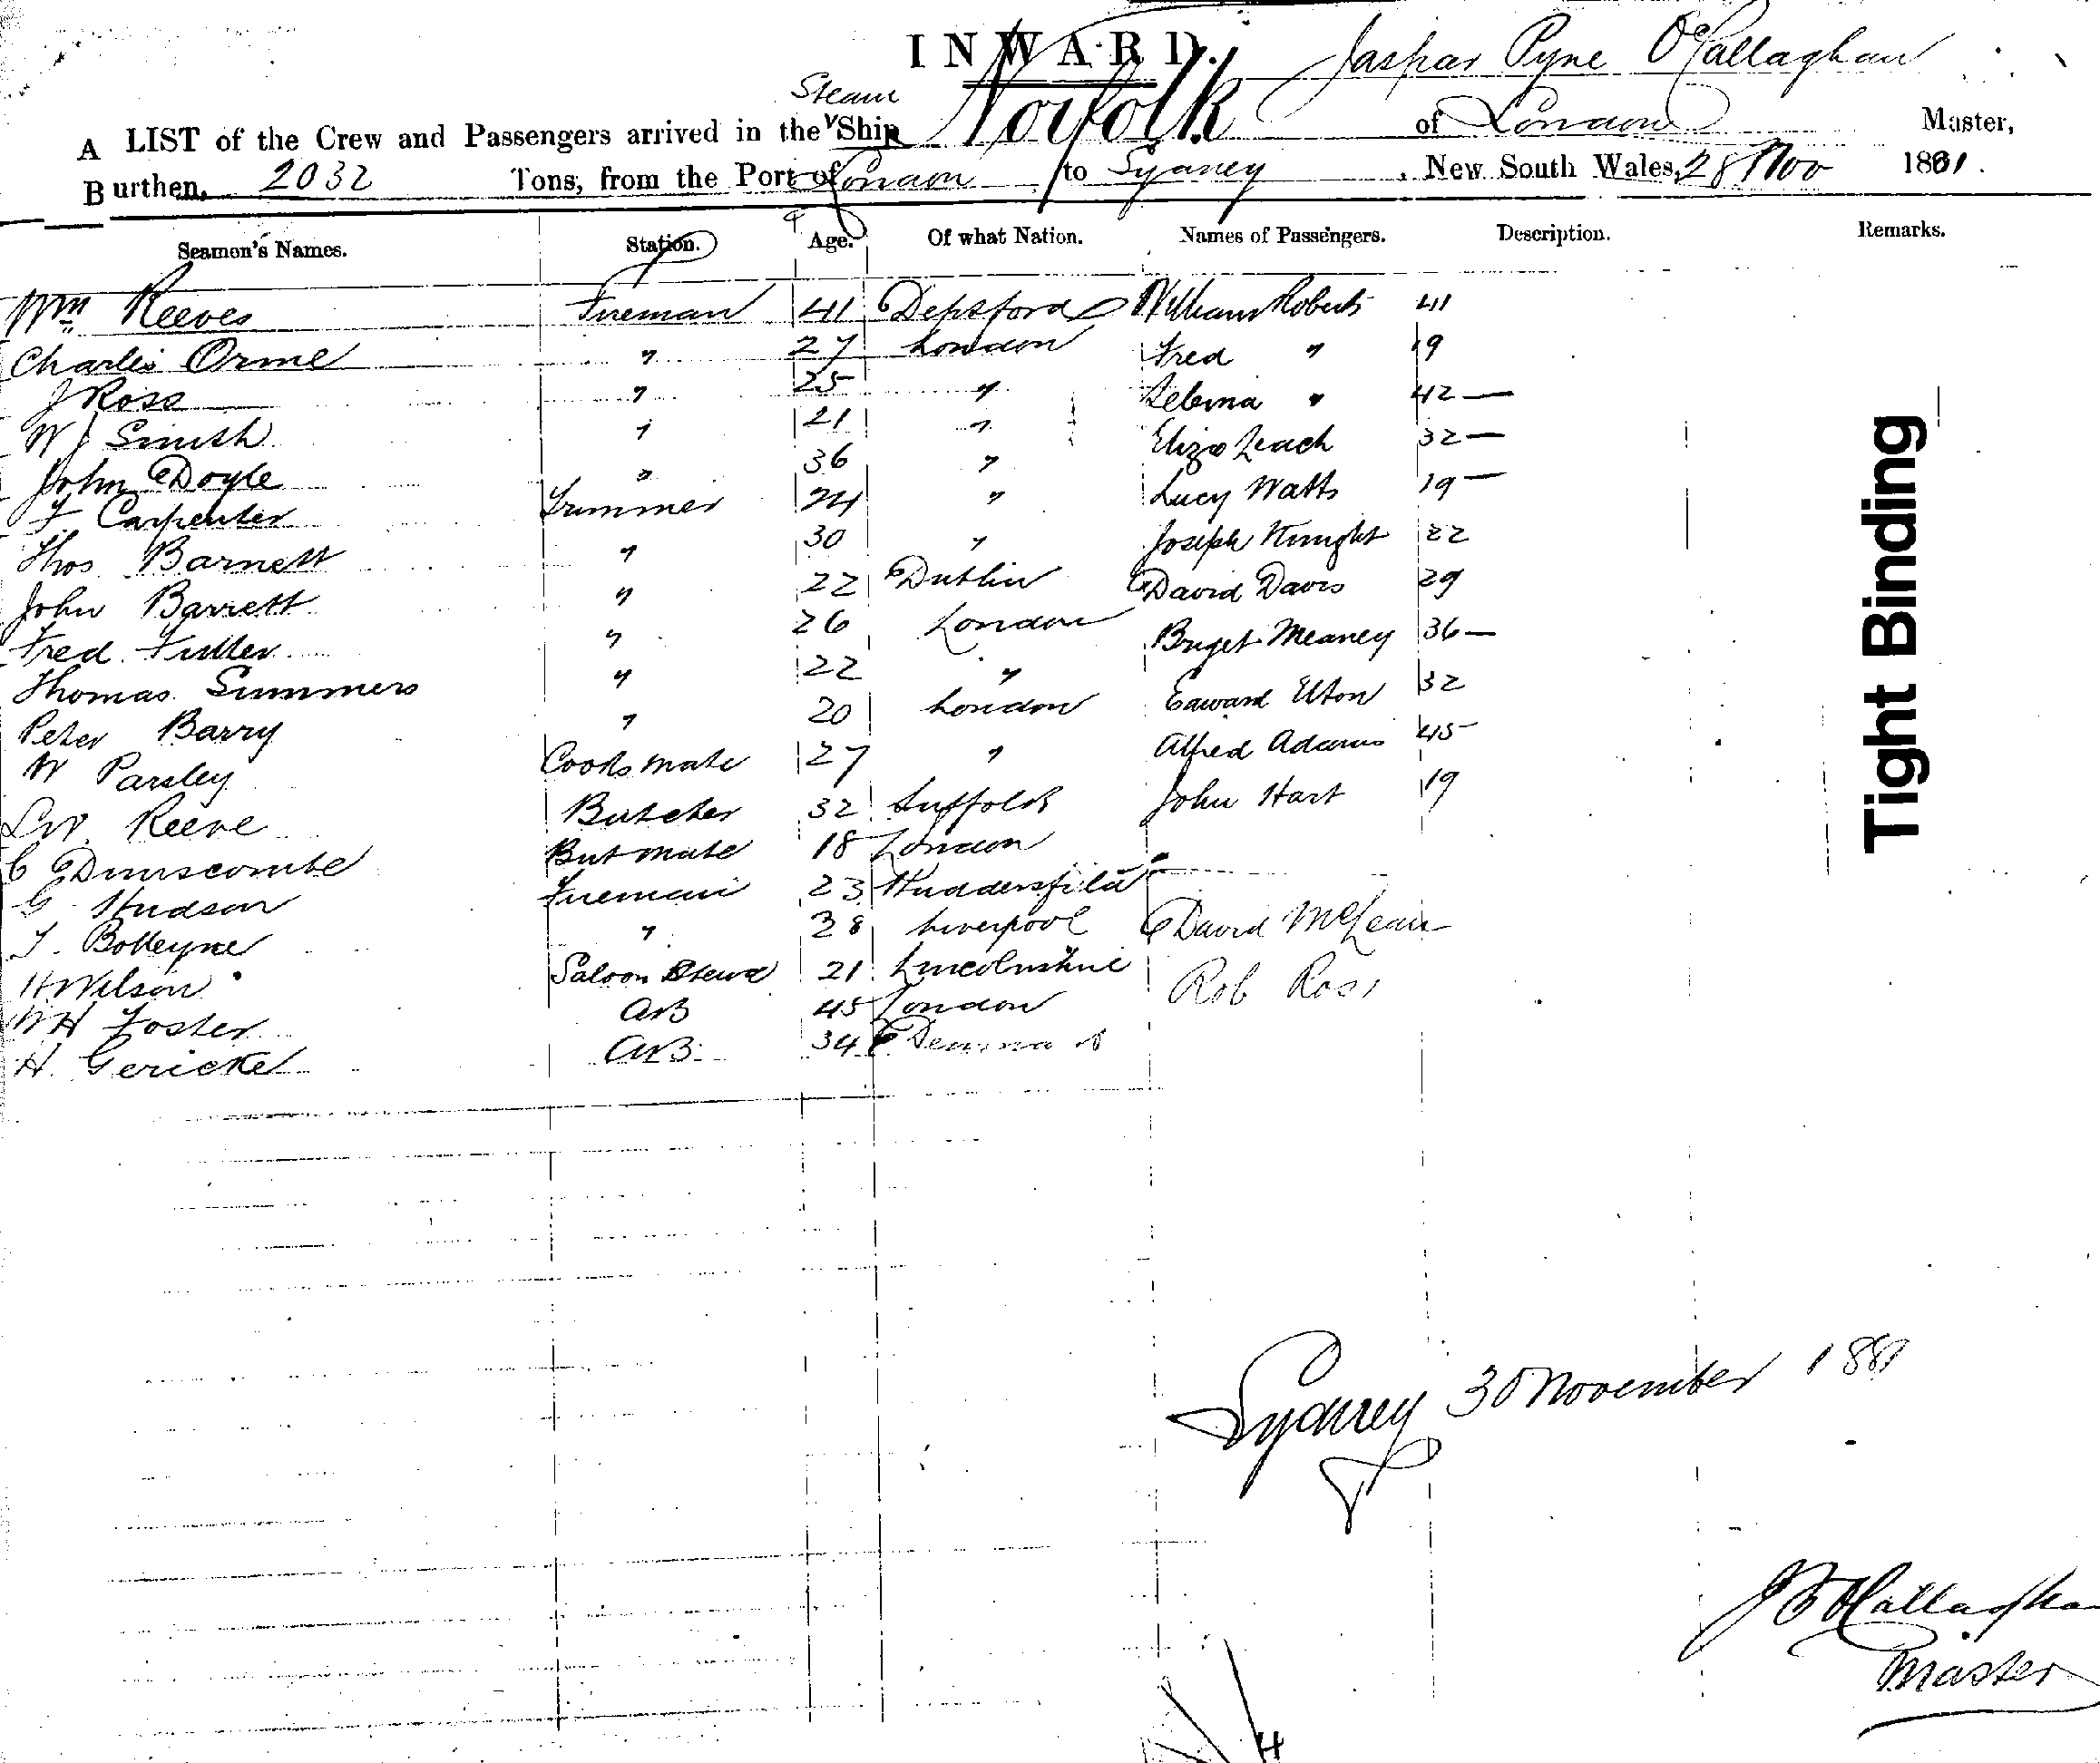 INWARD.
Jaspar Pyne O'Callaghan
Steam
A LIST of the Crew and Passengers arrived in the Ship Norfolk of London Master,
Burthen, 2032 Tons, from the Port of London to Sydney, New South Wales, 28 Nov 1881.
Seamen's Names. Station. Age. Of what Nation. Names of Passengers. Description. Remarks.
Wm Reeves Fireman 41 Deptford William Roberts 41
Charles Orme " 27 London Fred " 19
J Ross " 25 " " 42 —
W J Smith " 21 " Eliza Leach 32 —
John Doyle " 36 " Lucy Watts 19 —
F Carpenter Trimmer 24 " Joseph Knight 22
Thos Barnett " 30 " David Davis 29
John Barrett " 22 Dublin Briget Meaney 36 —
Fred Fuller " 26 London Edward Elton 32
Thomas Summers " 22 " Alfred Adams 45
Peter Barry " 20 London John Hart 19
W Parsley Cooks mate 27 "
Reeve Butcher 32 Suffolk
C Dunscombe But mate 18 London
G Hudson Fireman 23 Huddersfield
T. Bolleyne " 28 Liverpool David McLean
H Wilson Saloon Stewd 21 Lincolnshire Rob Ross
W H Foster AB 45 London
H. Gericke AB 34 Denmark
Sydney 30 November 1881
J P O'Callaghan
Master
Tight Binding